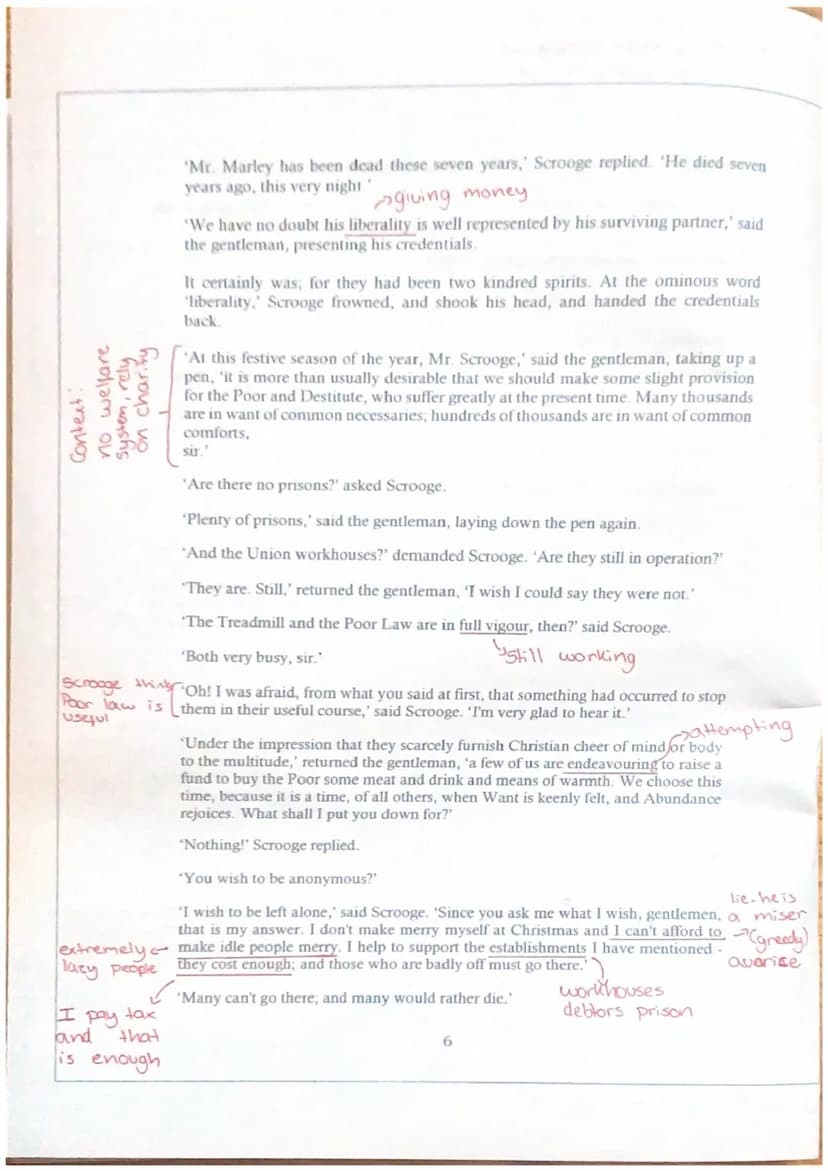 ‘Mr. Marley has been dead these seven years,’ Scrooge replied. ‘He died seven
years ago, this very night.’
→giving money
‘We have no doubt his liberality is well represented by his surviving partner,’ said
the gentleman, presenting his credentials.
It certainly was; for they had been two kindred spirits. At the ominous word
‘liberality,’ Scrooge frowned, and shook his head, and handed the credentials
back.
Context:
no welfare
system, rely
on charity
‘At this festive season of the year, Mr. Scrooge,’ said the gentleman, taking up a
pen, ‘it is more than usually desirable that we should make some slight provision
for the Poor and Destitute, who suffer greatly at the present time. Many thousands
are in want of common necessaries; hundreds of thousands are in want of common
comforts,
sir.’
‘Are there no prisons?’ asked Scrooge.
‘Plenty of prisons,’ said the gentleman, laying down the pen again.
‘And the Union workhouses?’ demanded Scrooge. ‘Are they still in operation?’
‘They are. Still,’ returned the gentleman, ‘I wish I could say they were not.’
‘The Treadmill and the Poor Law are in full vigour, then?’ said Scrooge.
‘Both very busy, sir.’
↳still working
Scrooge think
Poor law is
useful
‘Oh! I was afraid, from what you said at first, that something had occurred to stop
them in their useful course,’ said Scrooge. ‘I'm very glad to hear it.’
→attempting
‘Under the impression that they scarcely furnish Christian cheer of mind or body
to the multitude,’ returned the gentleman, ‘a few of us are endeavouring to raise a
fund to buy the Poor some meat and drink and means of warmth. We choose this
time, because it is a time, of all others, when Want is keenly felt, and Abundance
rejoices. What shall I put you down for?’
‘Nothing!’ Scrooge replied.
‘You wish to be anonymous?’
‘I wish to be left alone,’ said Scrooge. ‘Since you ask me what I wish, gentlemen,
that is my answer. I don't make merry myself at Christmas and I can't afford to
make idle people merry. I help to support the establishments I have mentioned -
they cost enough; and those who are badly off must go there.’
lie-he is
a miser
→(greedy)
avarice
extremely ←
lazy people
‘Many can't go there; and many would rather die.’
workhouses
debtors prison
I pay tax
and that
is enough
6